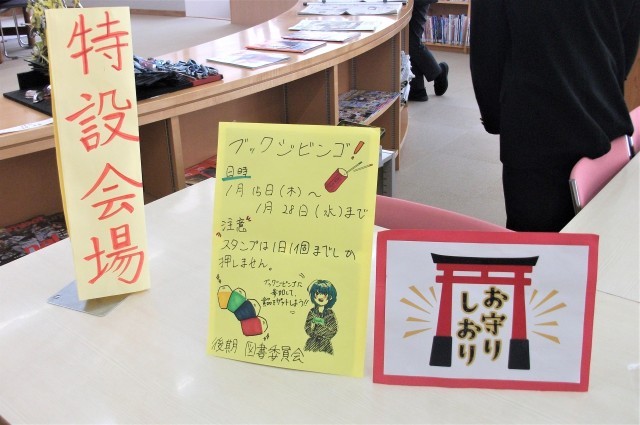 特設会場
ブックジビンゴ!
日時
1月15日(木)～
1月28日(水)まで
注意
スタンプは1日1個までしか
押しません。
ブックビンゴに
参加して、
景品をゲットしよう!!
後期 図書委員会
お守り
しおり